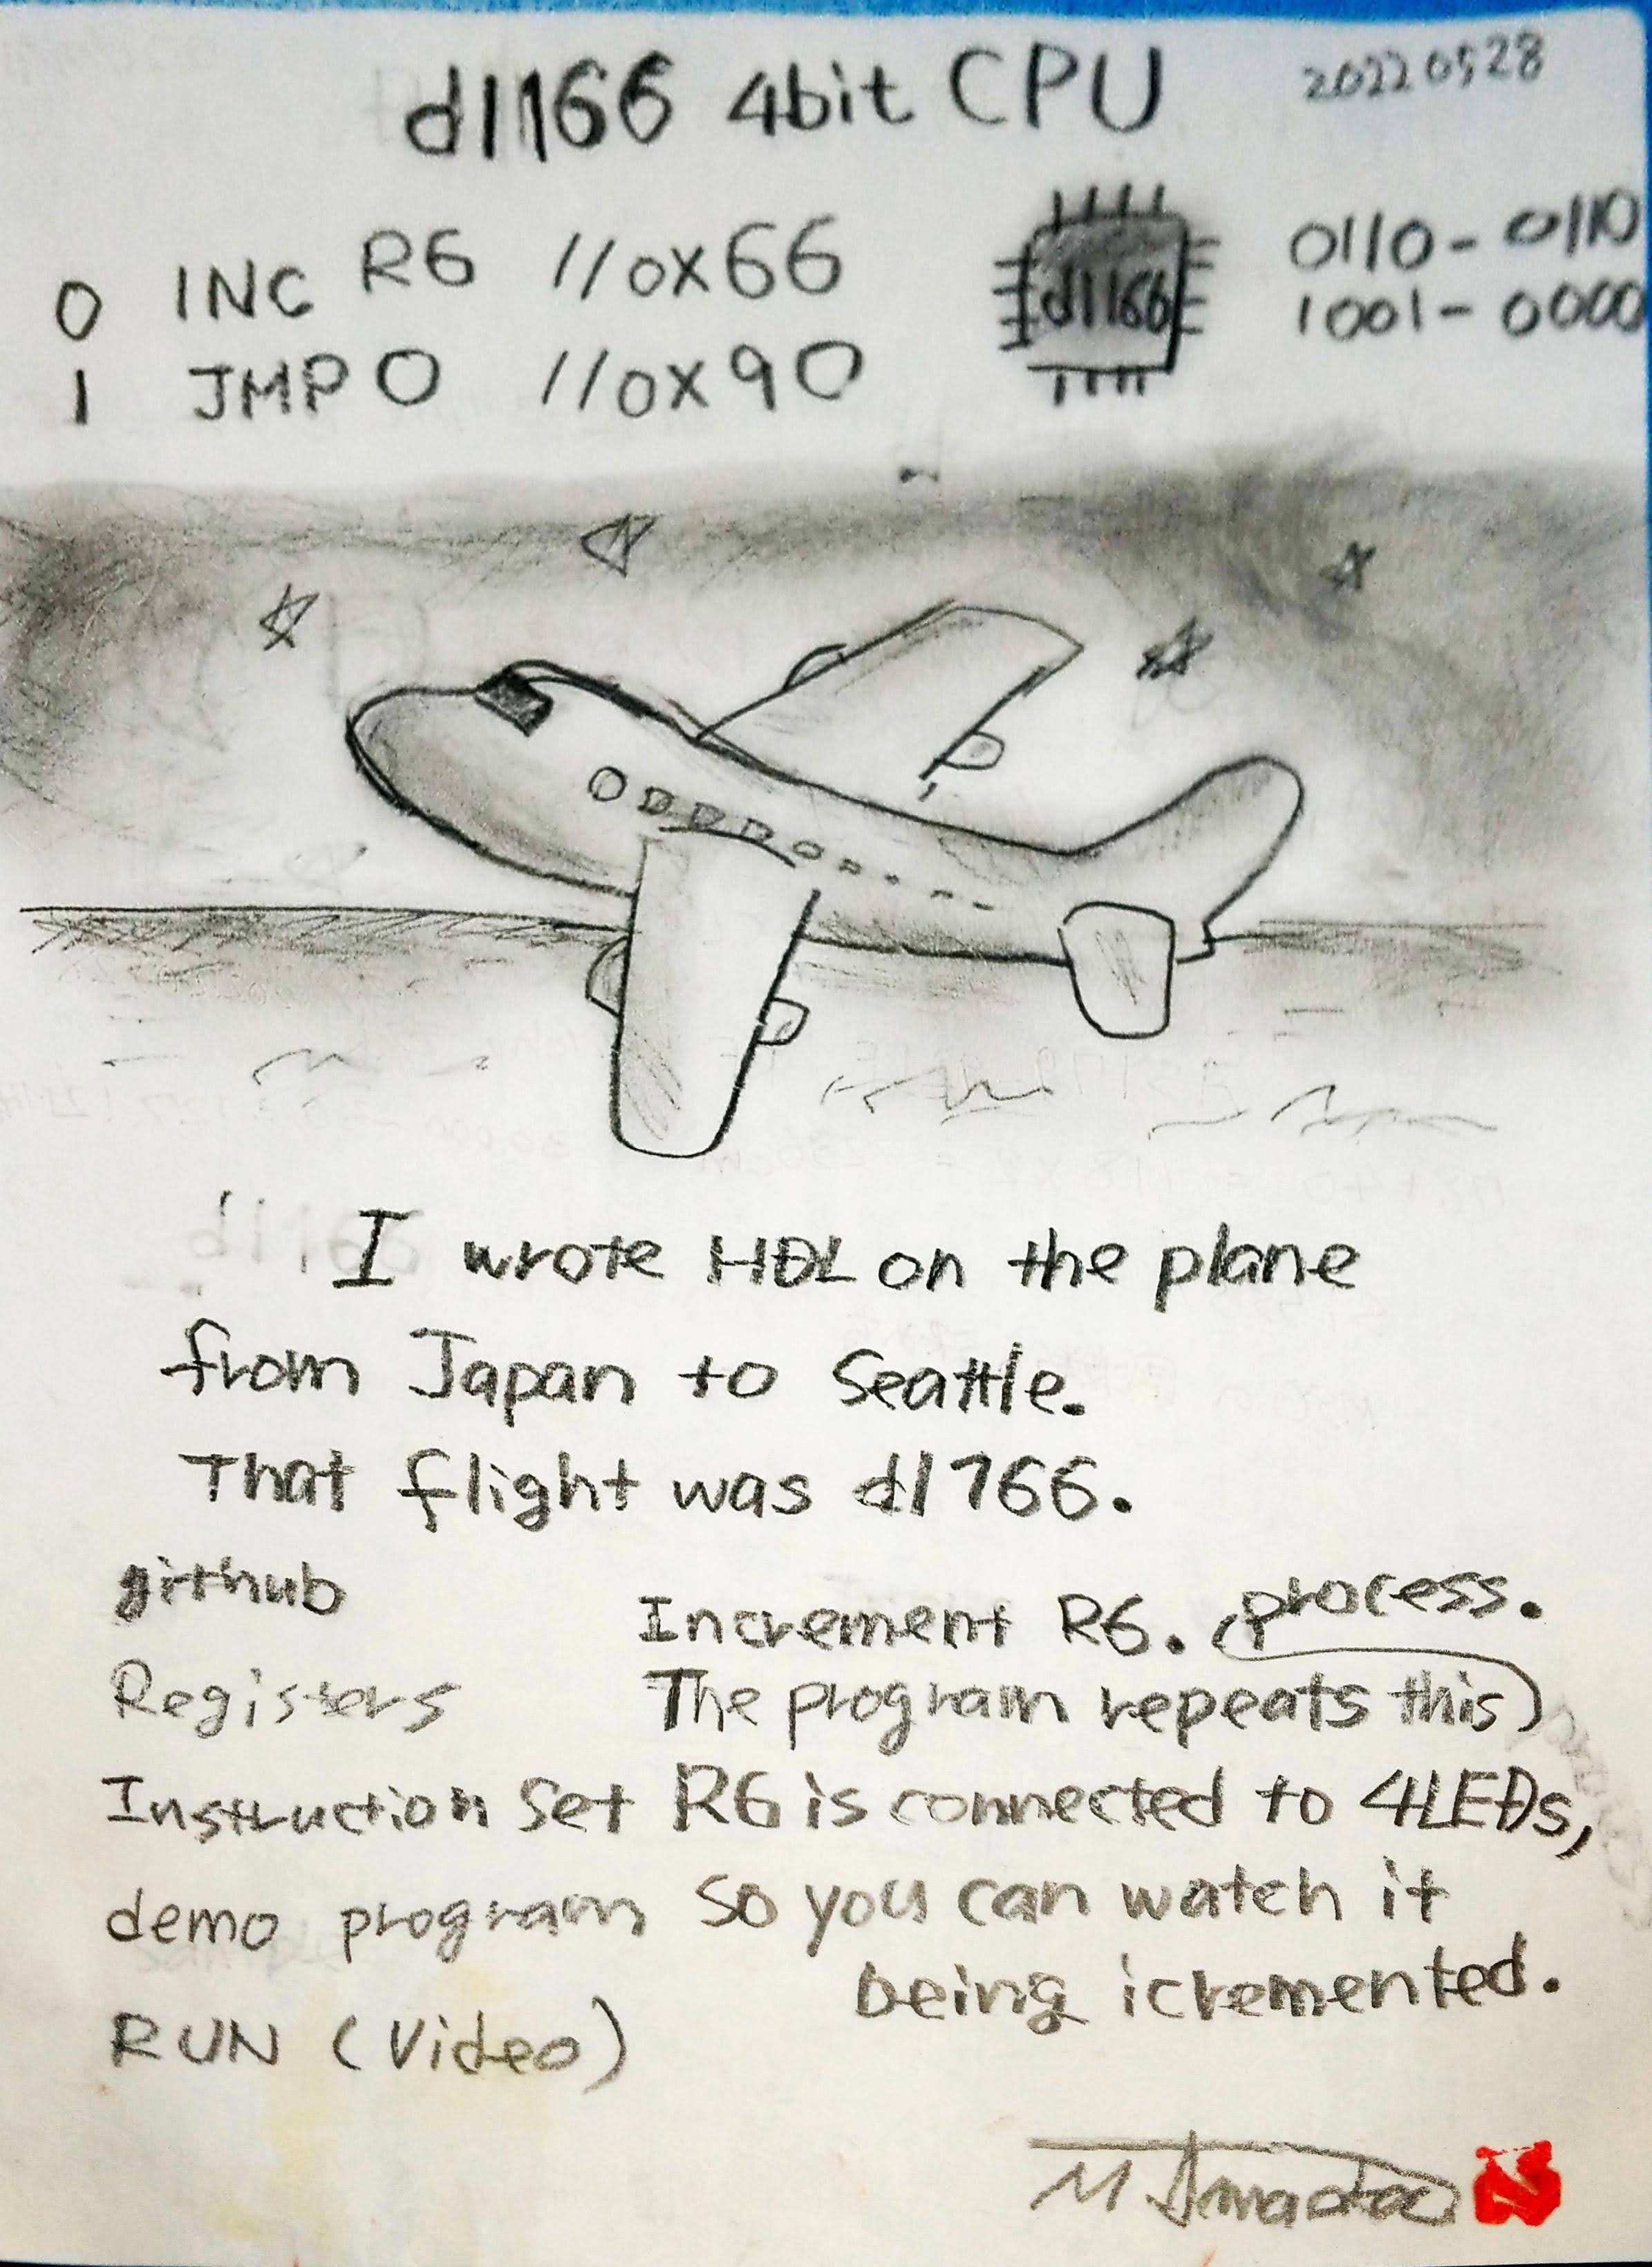 d1166 4bit CPU
20220528
0 INC R6 //0x66
1 JMP 0 //0x90
d1166
0110-0110
1001-0000
I wrote HDL on the plane
from Japan to Seattle.
That flight was d1166.
github
Registers
Instruction Set
demo program
RUN (Video)
Increment R6.
The program repeats this process.
R6 is connected to 4LEDs,
so you can watch it
being icremented.